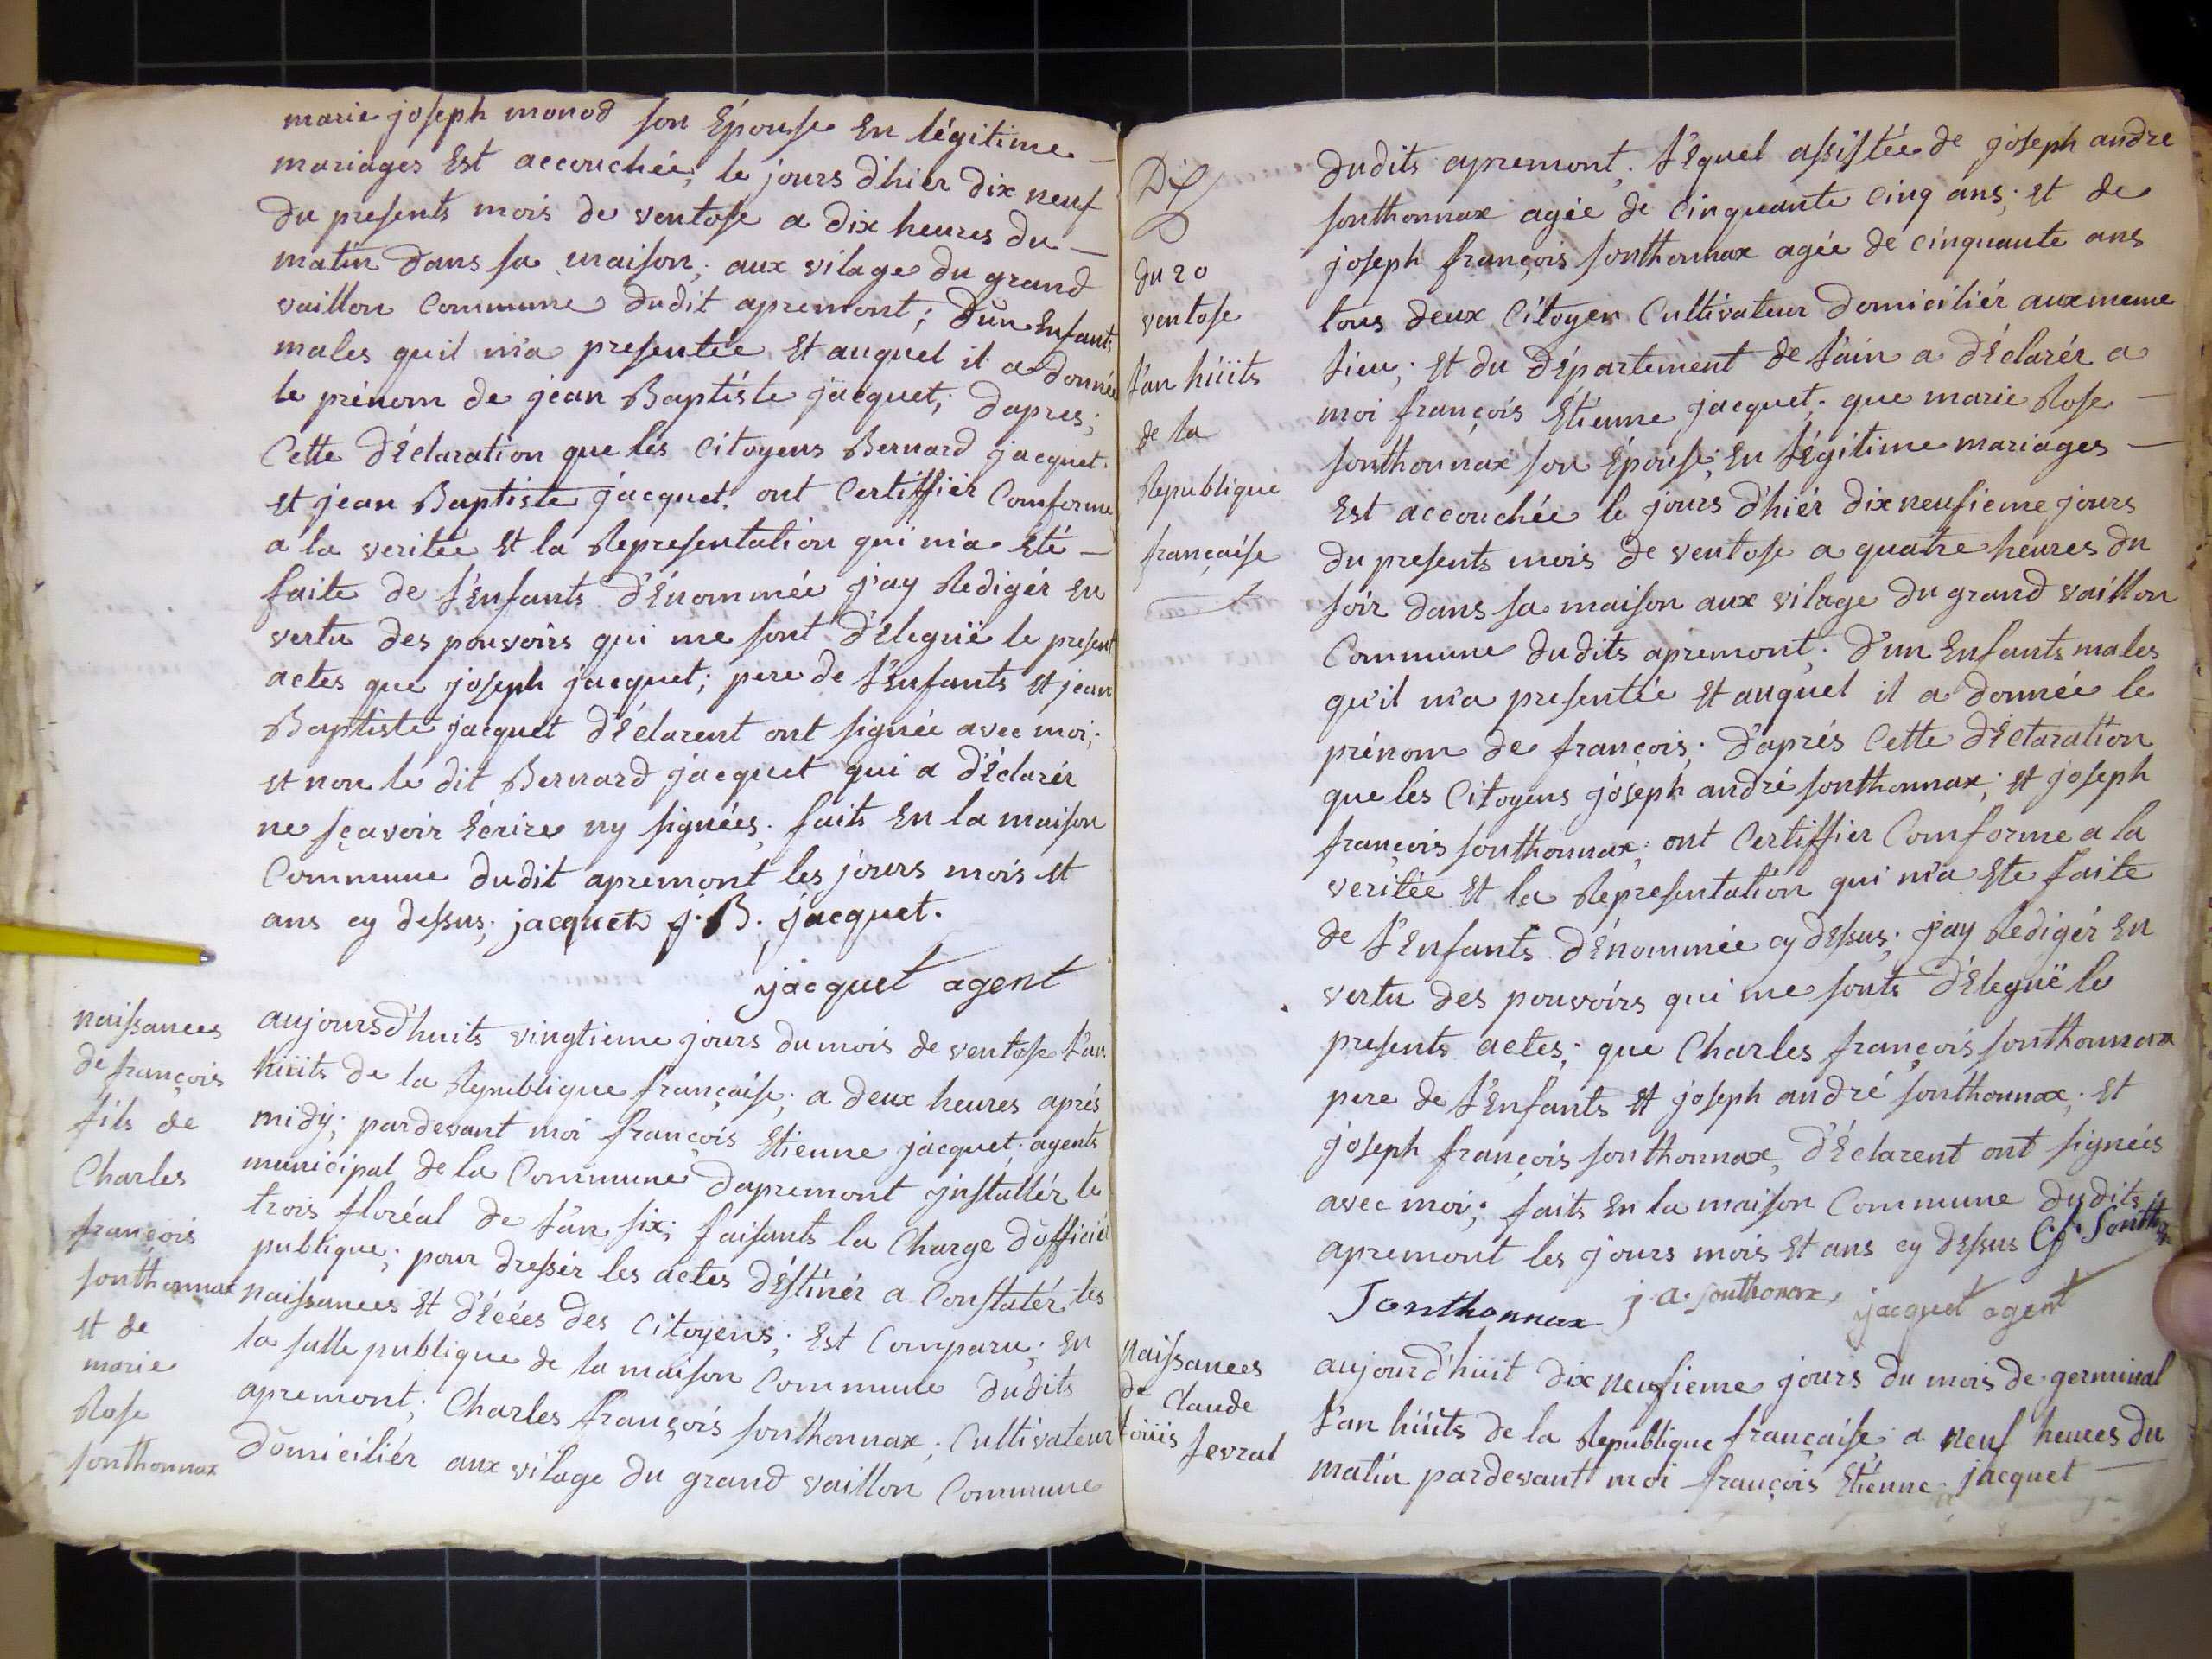 marie joseph monod son Épouse En légitime
mariages Est accouchée; le jours d'hier dix neuf
du presents mois de ventose a dix heures du
matin dans sa maison; aux vilage du grand
vaillon Commune dudit apremont; d'un Enfants
males quil m'a presentée Et auquel il a donnée
le prénom de jean Baptiste jacquet; dapres;
Cette dÉclaration que les Citoyens Bernard jacquet
et jean Baptiste jacquet. ont Certiffier Comforme
a la veritée Et la Representation qui m'a Eté
faite de l'Enfants dÉnommée j'ay Redigér En
vertu des pouvoirs qui me sont dÉleguë le present
actes que joseph jacquet; pere de l'Enfants Et jean
Baptiste jacquet dÉclarent ont signée avec moi;
et non le dit Bernard jacquet qui a dÉclarér
ne sçavoir Écrire ny signées; faits En la maison
Commune dudit apremont les jours mois Et
ans cy dessus; jacquet j. B. jacquet.
jacquet agent
naissances
de françois
fils de
Charles
françois
sonthonnax
et de
marie
Rose
sonthonnax
aujoursd'huits vingtieme jours du mois de ventose l'an
hüits de la Republique française; a deux heures aprés
midÿ; pardevant moi françois Etienne jacquet; agents
municipal de la Commune dapremont jnstallér le
trois floréal de l'an six; faisants la Charge d'officié
publique; pour dressér les actes dÉstinér a Constatér les
naissances Et dÉcées des Citoyens; Est Comparu; En
la salle publique de la maison Commune dudits
apremont; Charles françois sonthonnax; Cultivateur
domiciliér aux vilage du grand vaillon Commune
Dix
du 20
ventose
l'an hüits
de la
Republique
française
dudits apremont; lequel assistée de joseph andre
sonthonnax agée de Cinquante Cinq ans; et de
joseph françois sonthonnax agée de cinquante ans
tous deux Citoyen Cultivateur domiciliér aux meme
lieu; Et du dÉpartement de l'ain a dÉclarér a
moi françois Etienne jacquet; que marie Rose
sonthonnax son Épouse; En lÉgitime mariages
Est accouchée le jours d'hiér dix neufieme jours
du presents mois de ventose a quatre heures du
soir dans sa maison aux vilage du grand vaillon
Commune dudits apremont; d'un Enfants males
qu'il m'a presentée Et auquel il a donnée le
prénom de françois; d'aprés Cette dÉclaration
que les Citoyens joseph andré sonthonnax; et joseph
françois sonthonnax; ont Certiffier Comforme a la
veritée Et la Representation qui m'a Ete faite
de l'Enfants dÉnommée cy dessus; j'ay Redigér En
vertu des pouvoirs qui me sonts dÉleguë le
presents actes; que Charles françois sonthonnax
pere de l'Enfants Et joseph andré sonthonnax; et
joseph françois sonthonnax, dÉclarent ont signées
avec moi; faits En la maison Commune dudits
apremont les jours mois Et ans cy dessus
Sonthonnax j. a. sonthonax, jacquet agent
naissances
de Claude
loüis
aujourd'huit dix neufieme jours du mois de germinal
l'an hüits de la Republique française; a neuf heures du
matin pardevant moi françois Etienne jacquet